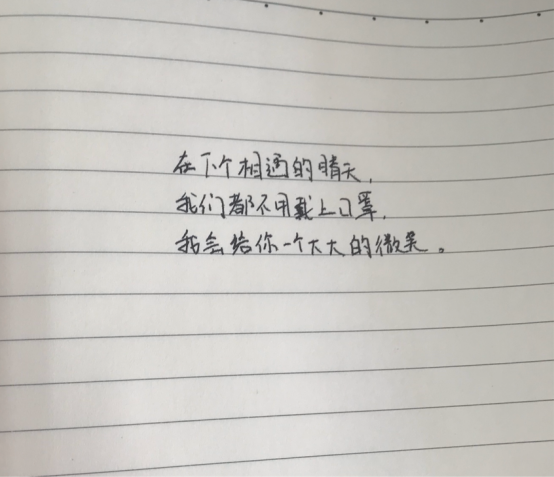 在下个相遇的晴天,
我们都不用戴上口罩,
我会给你一个大大的微笑。